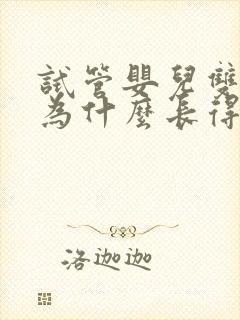 試管嬰兒雙
為什麼長得
洛迦迦